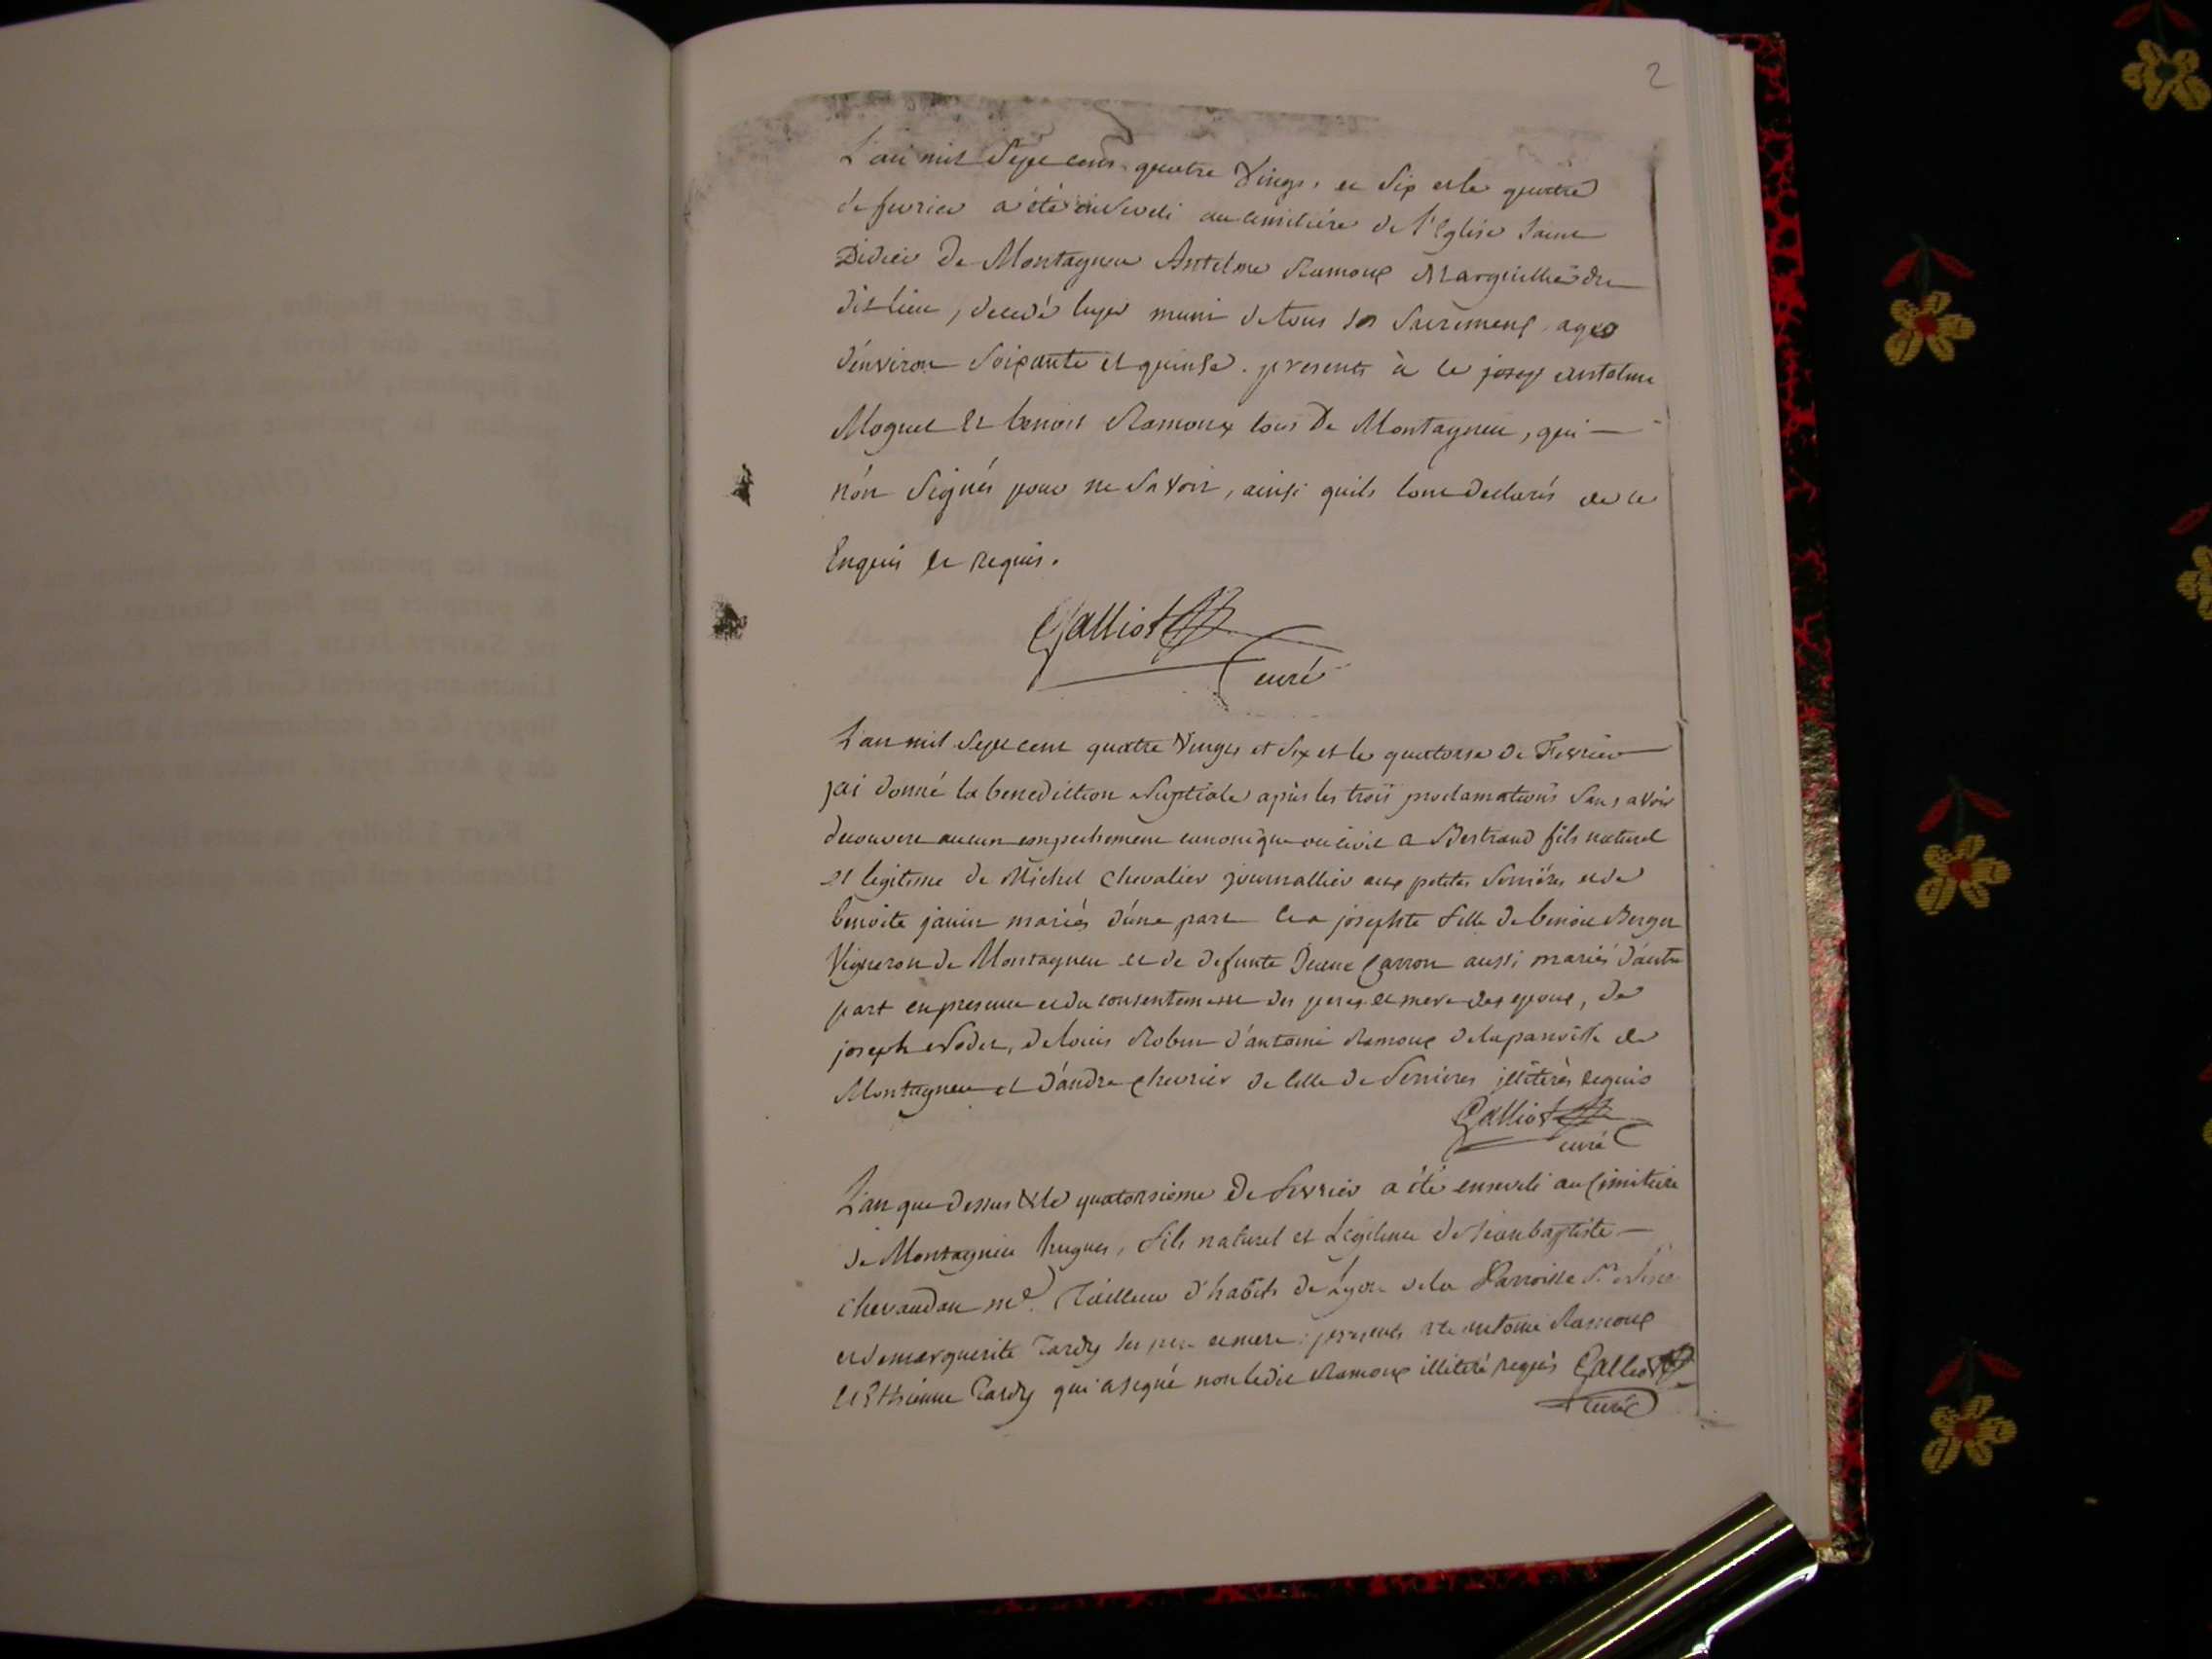 2
L'an mil Sept cens quatre Vings et Six et le quatre
de fevrier a été enseveli au cimitiére de l'Eglise Saint
Didier De Montagneu Antelme Ramoux Marguillié du
dit lieu, decedé muni de tous ses Sacremens, agé
d'énviron Soixante et quinse. presents à ce josep Antelme
Moguet et benoit Ramoux tous De Montagneu, qui
nón Signés pour ne Savoir, ainsi quils lont declarés de ce
Enquis et Requis.
Galliot
curé
L'an mil Sept cent quatre Vingts et Six et le quatorse de Fevrier
jai donné la benediction Nuptiale après les trois proclamations Sans avoir
decouvert aucun empechement canonique ou civil a Bertrand fils naturel
et legitime de Michel Chevalier journallier aux petites Serriéres et de
benoite janin mariés d'úne part et a josephte fille de benoit Berger
Vigneron de Montagneu et de defunte Carron aussi mariés d'autre
part en presence et du consentement des peres et mere des epoux, de
joseph Nodet, de louis Robin d'antoine Ramoux de la parroisse de
Montagneu et d'ándre chevrier de celle de Serrieres illitèrès Requis
Galliot
curé
L'an que dessus & le quatorsiéme De fevrier a été enseveli au Cimitiere
de Montagnieu hugues, fils naturel et Legitime de jean baptiste
chevaudan md. Tailleur d'habits de Lyon de la Parroisse St.
et de marguerite Tardy ses pere et mere : presents antoine Ramoux
et Ethienne Tardy qui a signé non ledit Ramoux illiteré requis Galliot
curé